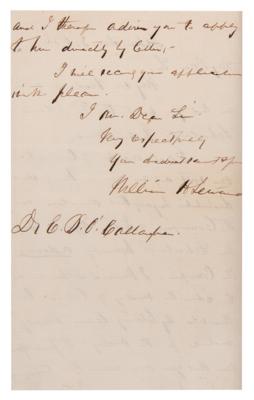 and I therefore advise you to apply
to him directly by letter,-
I will second your application
with pleasure.
I am, Dear Sir
Very respectfully
Your obedient servant
William H Seward
Dr E. B. O' Callaghan.